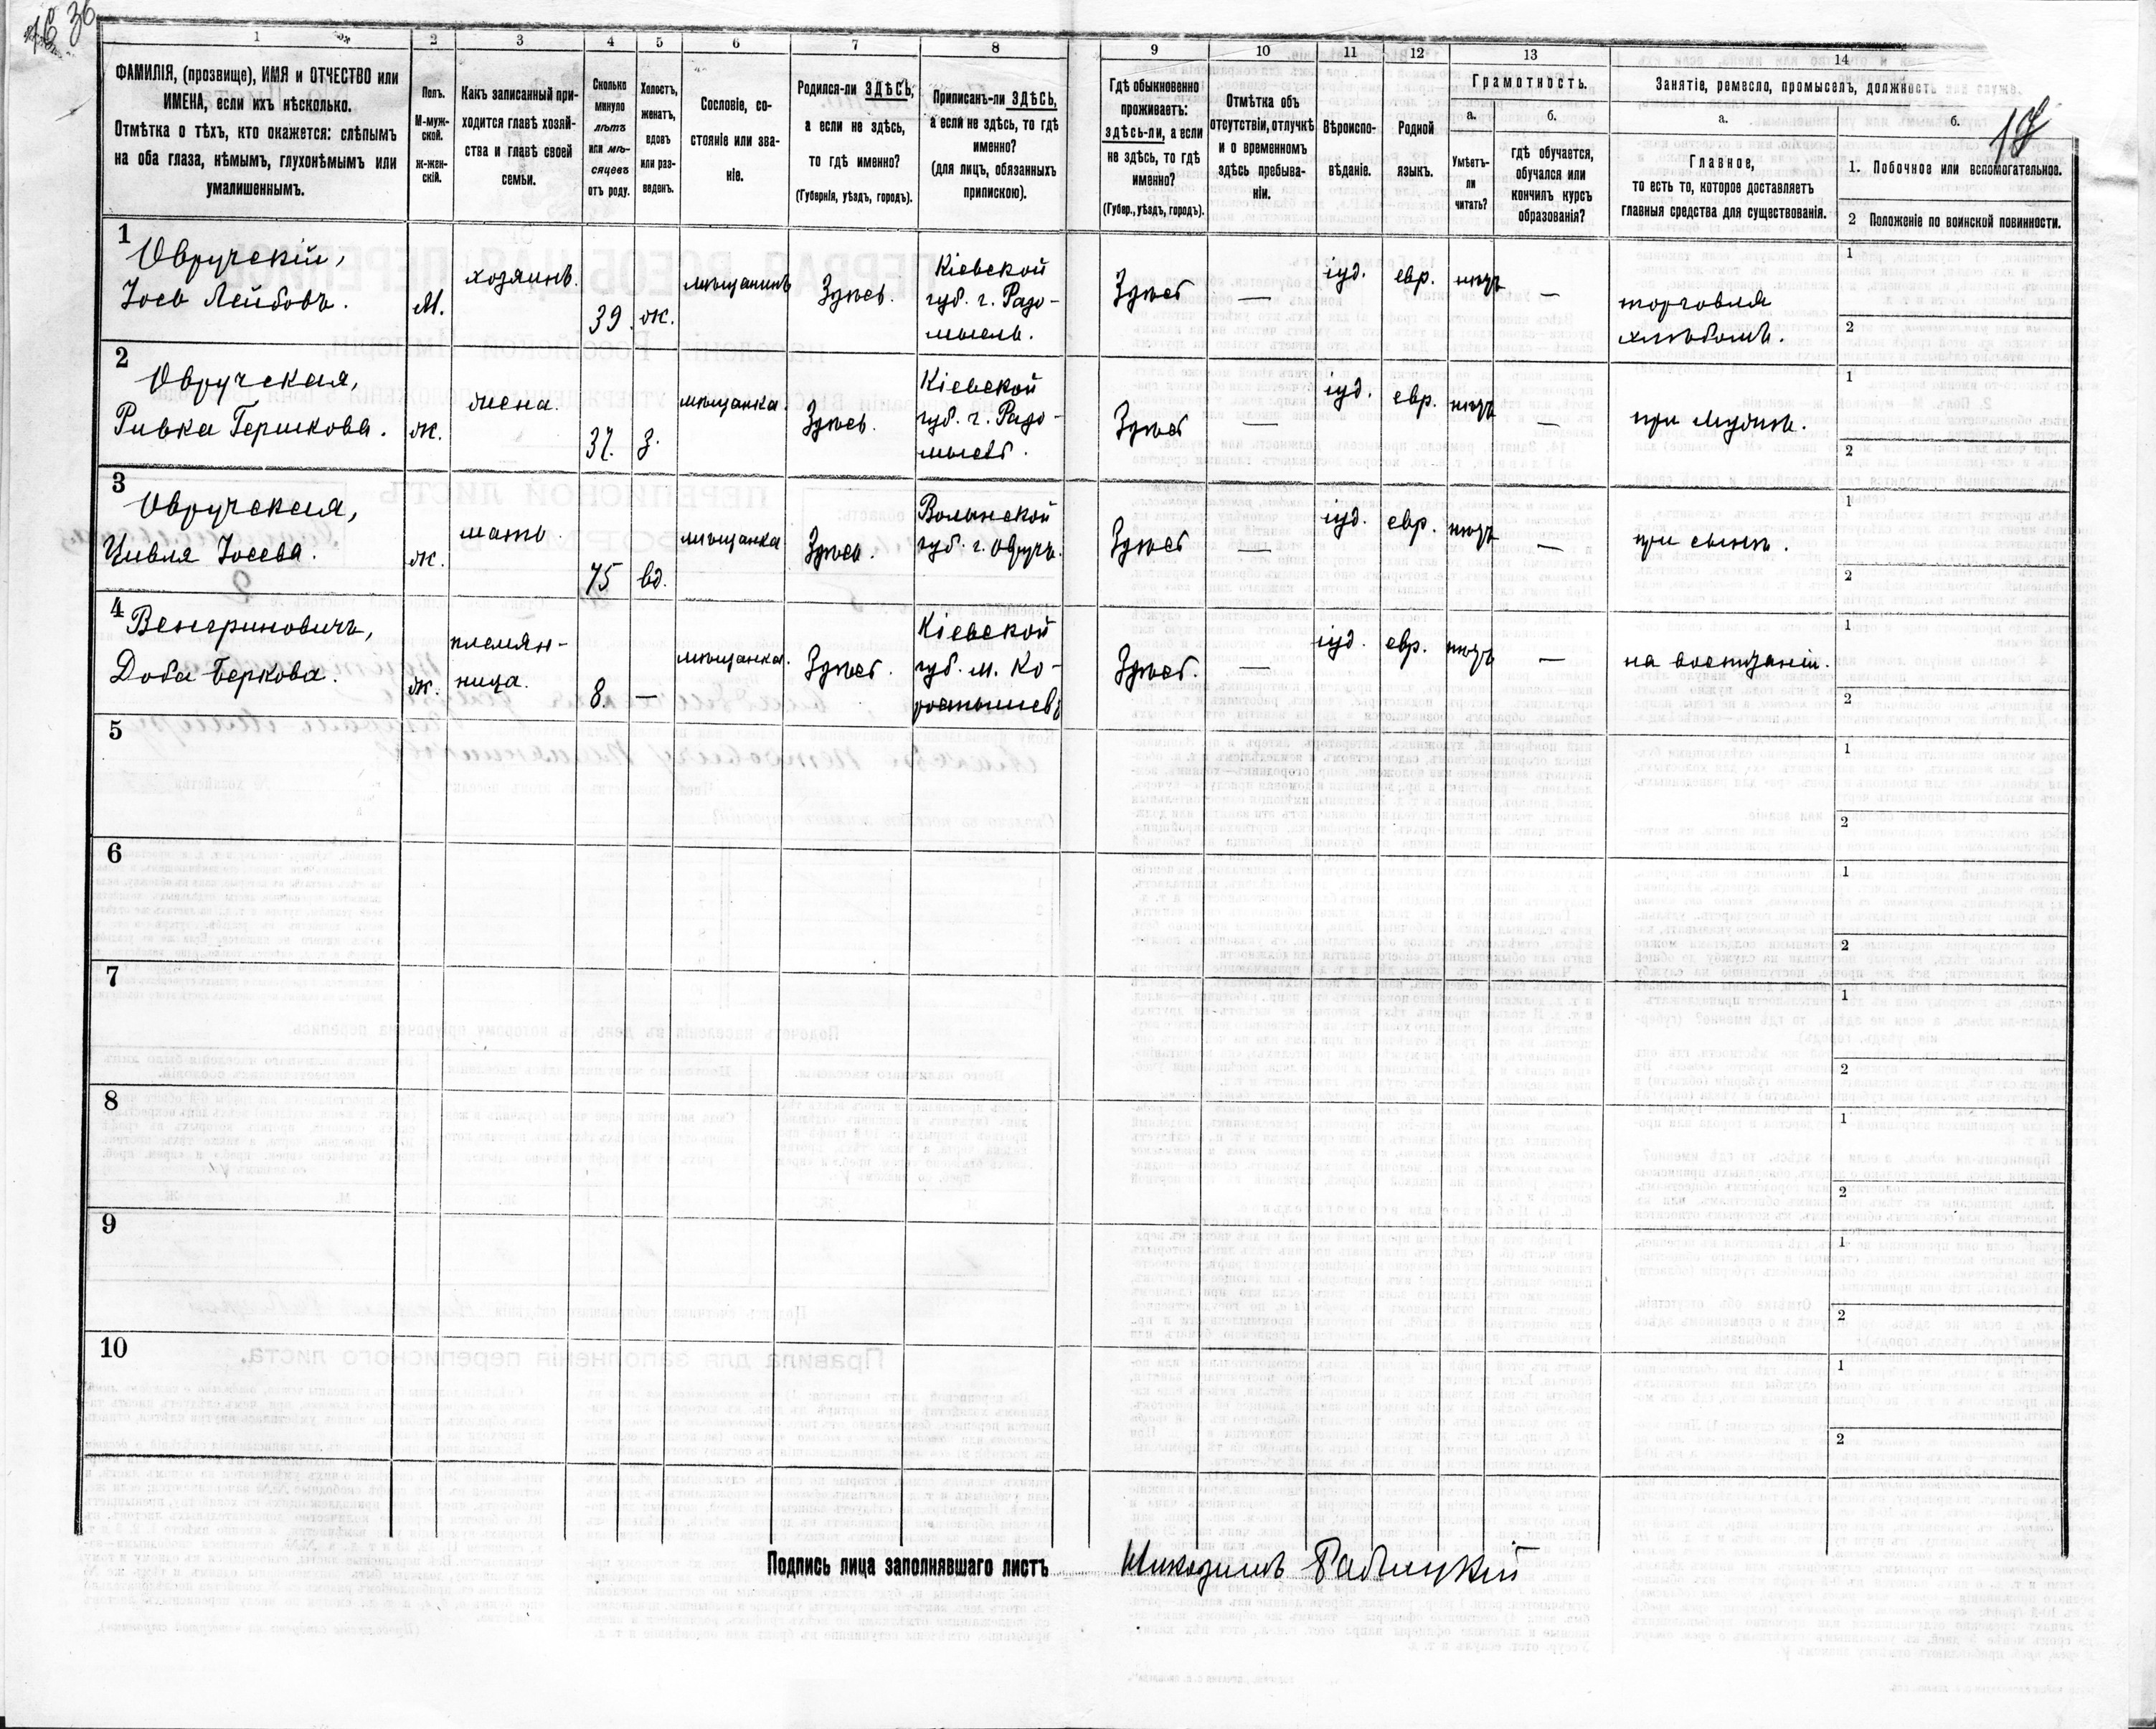 1 2 3 4 5 6 7 8 9 10 11 12 13 14
ФАМИЛІЯ, (прозвище), ИМЯ и ОТЧЕСТВО или
ИМЕНА, если ихъ нѣсколько.
Отмѣтка о тѣхъ, кто окажется: слѣпымъ
на оба глаза, нѣмымъ, глухонѣмымъ или
умалишеннымъ.
Полъ.
М-муж-
ской.
ж-жен-
скій.
Какъ записанный при-
ходится главѣ хозяй-
ства и главѣ своей
семьи.
Сколько
минуло
лѣтъ
или мѣ-
сяцевъ
отъ роду.
Холостъ,
женатъ,
вдовъ
или раз-
веденъ.
Сословіе, со-
стояніе или зва-
ніе.
Родился-ли ЗДѢСЬ,
а если не здѣсь,
то гдѣ именно?
(Губернія, уѣздъ, городъ).
Приписанъ-ли ЗДѢСЬ,
а если не здѣсь, то гдѣ
именно?
(для лицъ, обязанныхъ
припискою).
Гдѣ обыкновенно
проживаетъ:
здѣсь-ли, а если
не здѣсь, то гдѣ
именно?
(Губер., уѣздъ, городъ).
Отмѣтка объ
отсутствіи, отлучкѣ
и о временномъ
здѣсь пребыва-
ніи.
Вѣроиспо-
вѣданіе.
Родной
языкъ.
Грамотность.
а.
Умѣетъ-
ли
читать?
б.
гдѣ обучается,
обучался или
кончилъ курсъ
образованія?
Занятіе, ремесло, промыселъ, должность или служба.
а.
Главное,
то есть то, которое доставляетъ
главныя средства для существованія.
б.
1. Побочное или вспомогательное.
2 Положеніе по воинской повинности.
17
1
Овручскій,
Іось Лейбовъ.
М.
хозяинъ.
39
ж.
мѣщанинъ
Здѣсь.
Кіевской
губ. г. Радо-
мысль.
Здѣсь
—
іуд.
евр.
нѣтъ
—
торговля
хлѣбомъ.
1
2
2
Овручская,
Ривка Гершкова.
ж.
жена.
37.
з.
мѣщанка.
Здѣсь.
Кіевской
губ. г. Радо-
мысль.
Здѣсь
—
іуд.
евр.
нѣтъ
—
при мужѣ.
1
2
3
Овручская,
Цивля Іосева.
ж.
мать.
75
вд.
мѣщанка
Здѣсь.
Волынской
губ. г. Овручъ.
Здѣсь
—
іуд.
евр.
нѣтъ
—
при сынѣ.
1
2
4
Венгриновичъ,
Доба Беркова.
ж.
племян-
ница.
8.
—
мѣщанка.
Здѣсь.
Кіевской
губ. м. Ко-
ростышевъ
Здѣсь.
—
іуд.
евр.
нѣтъ
—
на воспитаніи.
1
2
5
1
2
6
1
2
7
1
2
8
1
2
9
1
2
10
1
2
Подпись лица заполнявшаго листъ Никодимъ